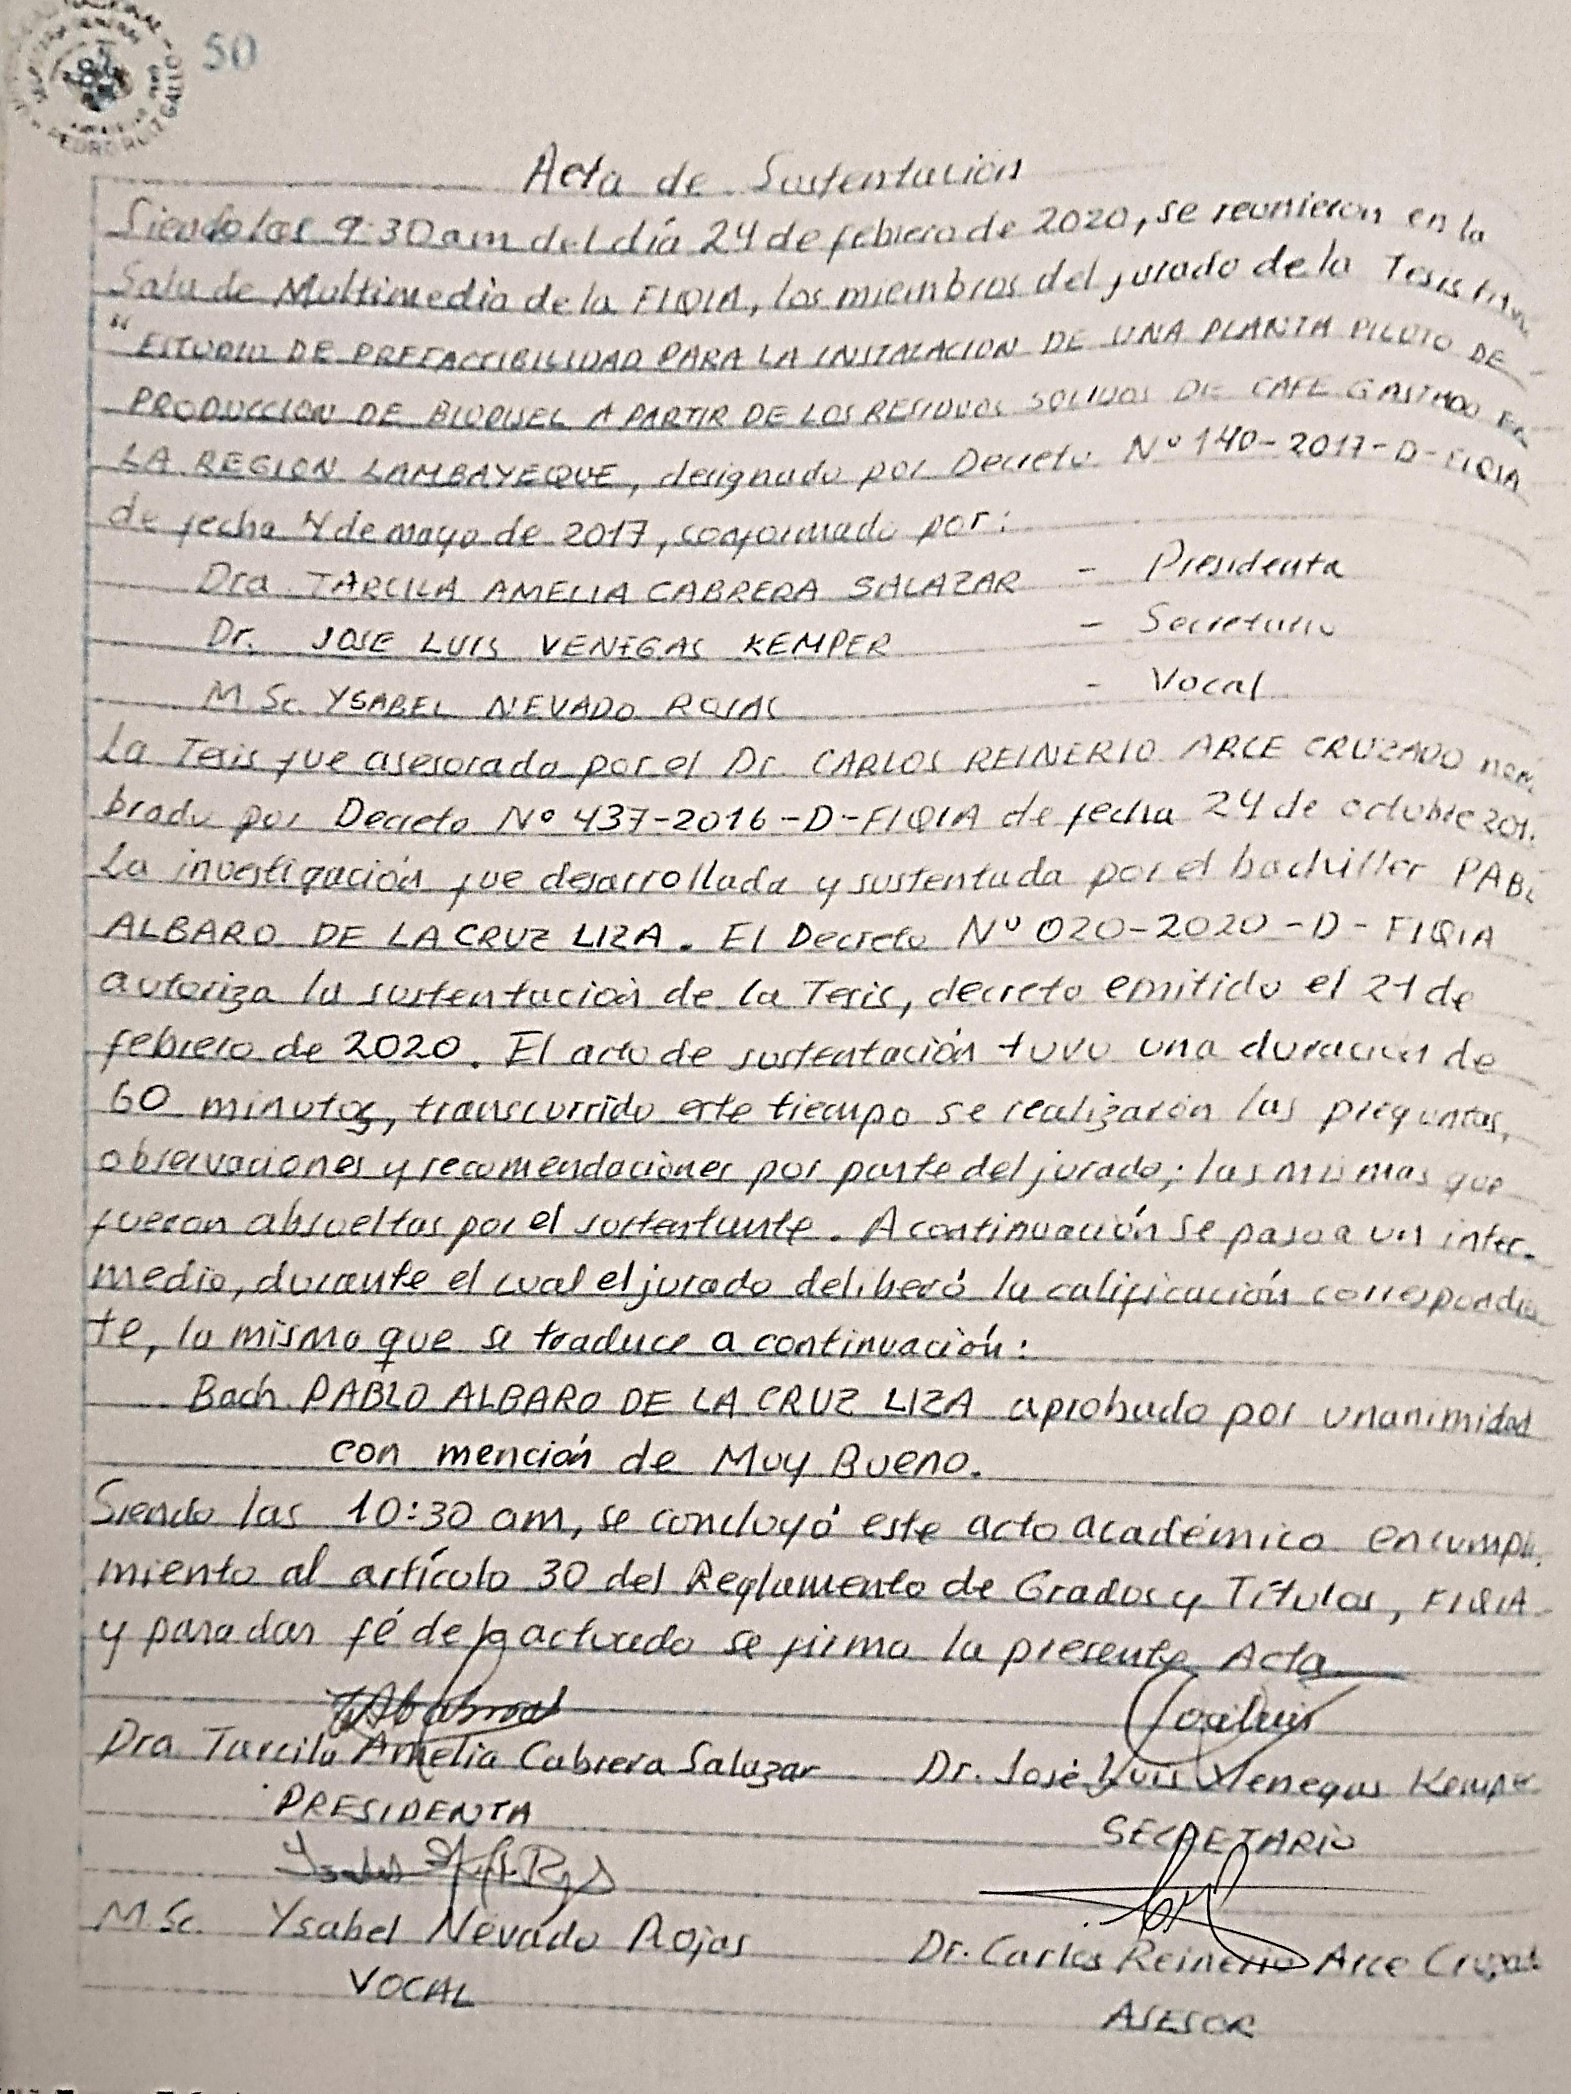 50
PEDRO RUIZ GALLO
Acta de Sustentación
Siendo las 9:30 am del día 24 de febrero de 2020, se reunieron en la
Sala de Multimedia de la FIQIA, los miembros del jurado de la Tesis
"ESTUDIO DE PREFACCIBILIDAD PARA LA INSTALACION DE UNA PLANTA PILOTO DE
PRODUCCION DE BIODIJEL A PARTIR DE LOS RESIDUOS SOLIDOS DE CAFE GASTADO EN
LA REGION LAMBAYEQUE, designado por Decreto Nº 140-2017-D-FIQIA
de fecha 4 de mayo de 2017, conformado por:
Dra TARCILA AMELIA CABRERA SALAZAR - Presidenta
Dr. JOSE LUIS VENEGAS KEMPER - Secretario
M Sc. YSABEL NEVADO ROJAS - Vocal
La Tesis fue asesorada por el Dr. CARLOS REINERIO ARCE CRUZADO nom
brado por Decreto Nº 437-2016-D-FIQIA de fecha 24 de octubre 201
La investigación fue desarrollada y sustentada por el bachiller PABL
ALBARO DE LA CRUZ LIZA. El Decreto Nº 020-2020-D-FIQIA
autoriza la sustentación de la Tesis, decreto emitido el 21 de
febrero de 2020. El acto de sustentación tuvo una duración de
60 minutos, transcurrido este tiempo se realizarón las preguntas,
observaciones y recomendaciones por parte del jurado; las mismas que
fueron absueltas por el sustentante. A continuación se paso a un inter-
medio, durante el cual el jurado deliberó la calificación correspondie
te, la misma que se traduce a continuación:
Bach. PABLO ALBARO DE LA CRUZ LIZA aprobado por unanimidad
con mención de Muy Bueno.
Siendo las 10:30 am, se concluyó este acto académico en cumpli
miento al artículo 30 del Reglamento de Grados y Títulos, FIQIA
y para dar fé de lo actuado se firma la presente Acta
Dra Tarcila Amelia Cabrera Salazar Dr. José Luis Venegas Kempe
PRESIDENTA SECRETARIO
M.Sc. Ysabel Nevado Rojas Dr. Carlos Reinerio Arce Cruzad
VOCAL ASESOR